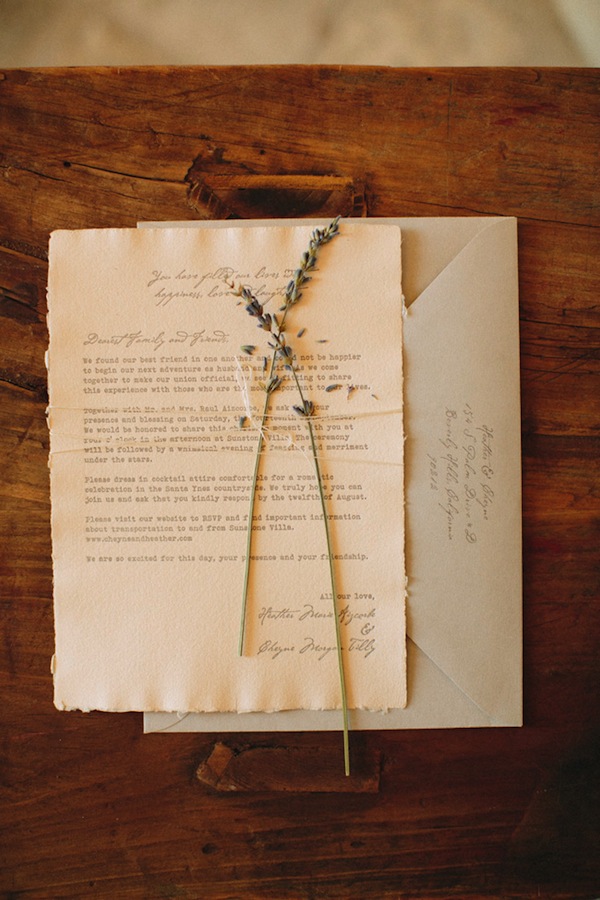 You have filled our lives
happiness, love laughter
Dearest Family and Friends,
We found our best friend in one another and could not be happier
to begin our next adventure as husband and wife as we come
together to make our union official, we see fitting to share
this experience with those who are the most important to our lives.
Together with Mr. and Mrs. Raul we ask your
presence and blessing on Saturday, the fourteenth of September.
We would be honored to share this moment with you at
four o'clock in the afternoon at Sunstone Villa. The ceremony
will be followed by a whimsical evening of dancing and merriment
under the stars.
Please dress in cocktail attire comfortable for a romantic
celebration in the Santa Ines countryside. We truly hope you can
join us and ask that you kindly respond by the twelfth of August.
Please visit our website to RSVP and find important information
about transportation to and from Sunstone Villa.
www.cheyneandheather.com
We are so excited for this day, your presence and your friendship.
All our love,
Heather Marie Aycock
&
Cheyne Morgan Tilly
Heather & Cheyne
154 S Palm Drive # D
Beverly Hills, California
90212